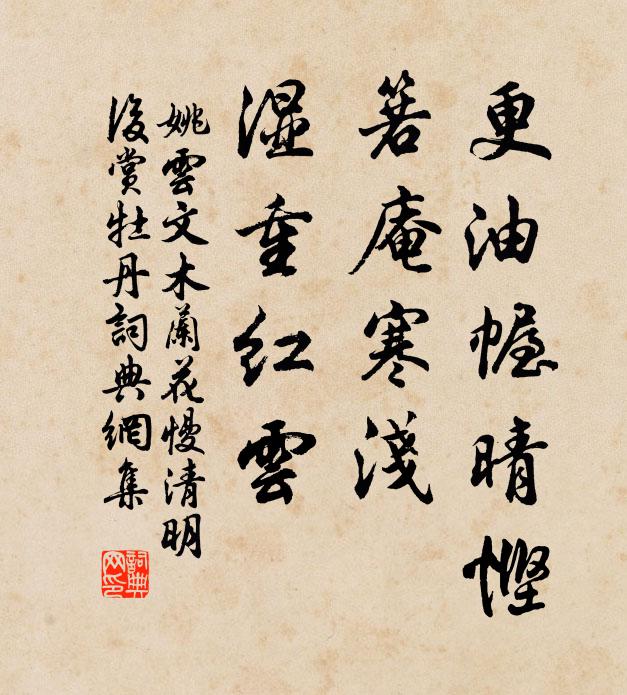 更油幄晴慳
箬庵寒淺
湿重紅雲
姚雲文木蘭花慢清明
後賞牡丹詞典網集
詞典
网印